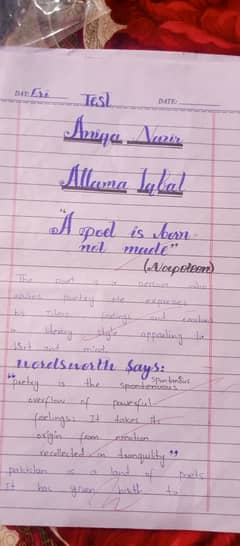 DAY: Fri
Test
DATE:
Aniqa Nazir
Allama Iqbal
"A poet is born
not made"
(Noepoleon)
The poet is a person who
writes poetry. He expresses
his ideas, feelings and emotions
in literary style appealing to
heart and mind.
Wordsworth Says:
"poetry is the spontenious spontenous
overflow of powerful
feelings: It takes its
origin from emotion
recollected in tranquility"
pakistan is a land of poets
It has given birth to